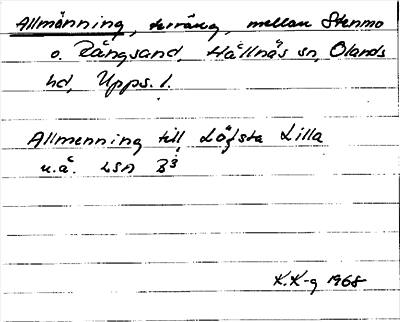 Allmänning, terräng, mellan Stenmo
o. Rångsand, Hållnäs sn, Olands
hd, Upps. l.
Allmenning till Löfsta Lilla
u.å. LSA B3
K.K-g 1968